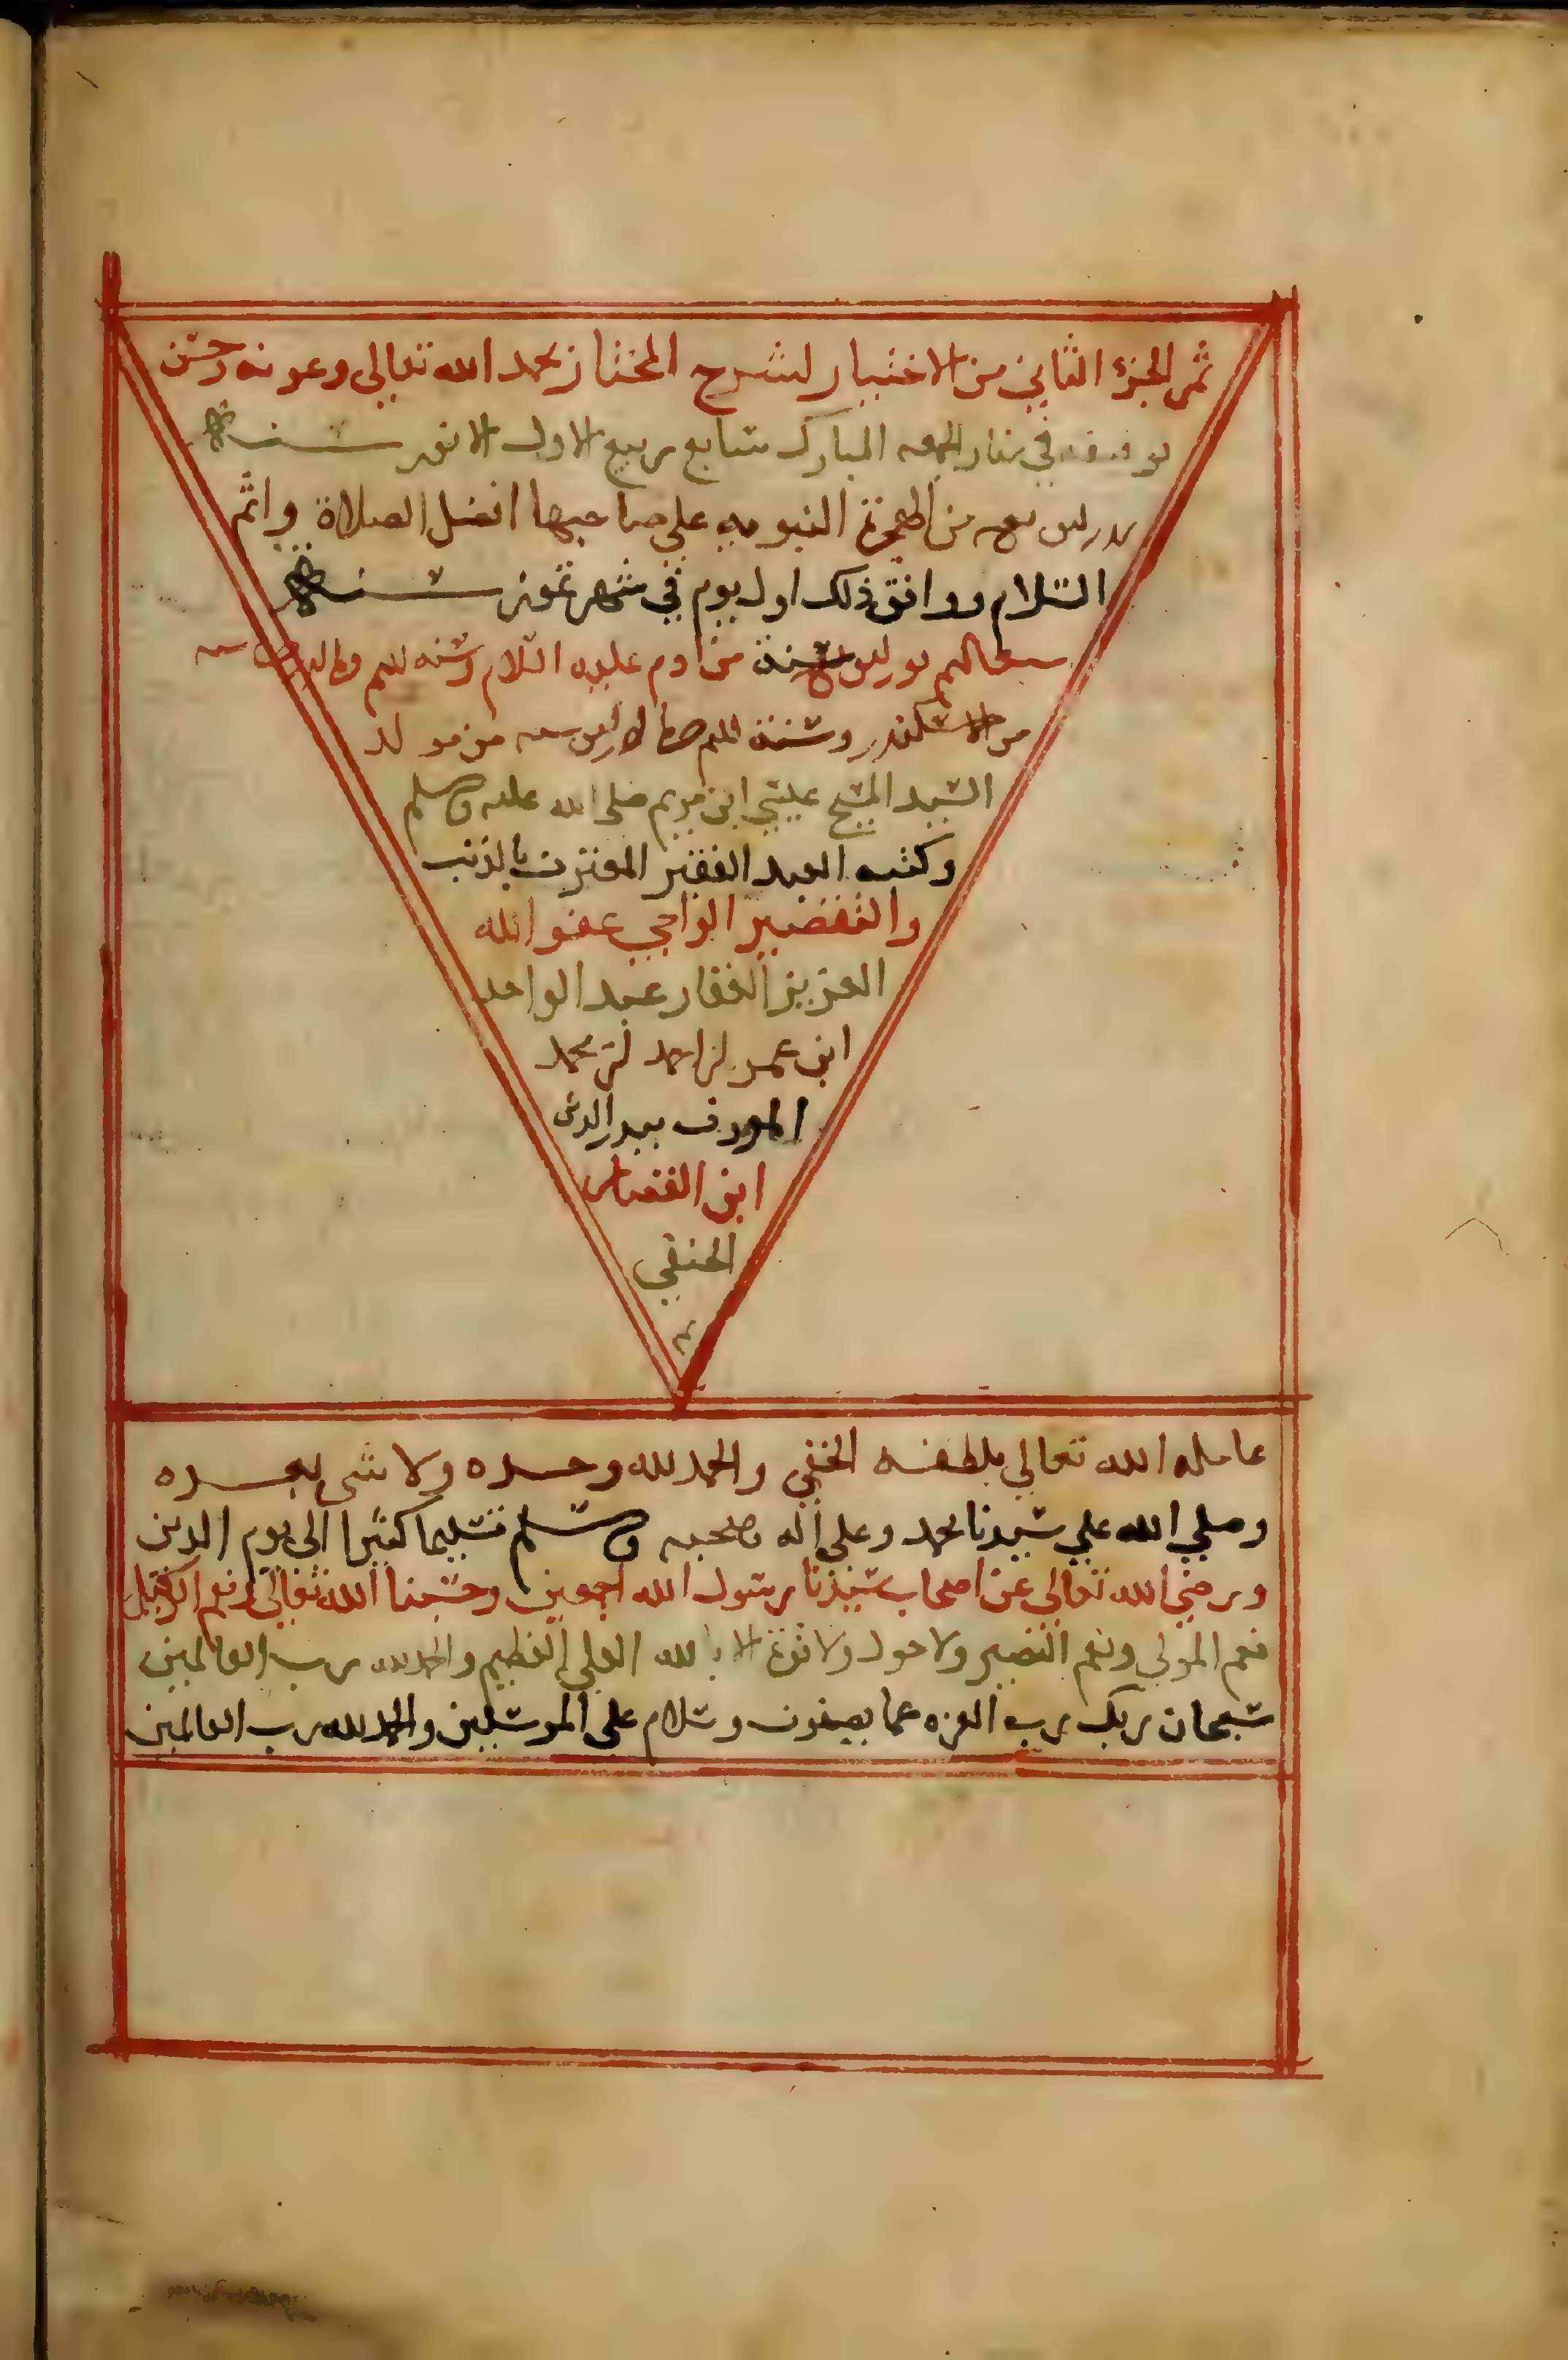 تم الجزء الثاني من الاختيار لشرح المختار بحمد الله تعالى وعونه وحسن
توفيقه في نهار الجمعه المبارك سابع ربيع الاول الانور سنة
من الهجرة النبويه على صاحبها افضل الصلاة واتم
السلام ووافق ذلك اول يوم في شهر تموز سنة
سنة من ادم عليه السلام وسنه
من الاسكندر وسنة من مولد
السيد المسيح عيسى ابن مريم صلى الله عليه وسلم
وكتبه العبد الفقير المعترف بالذنب
والتقصير الراجي عفو الله
العزيز الغفار عبد الواحد
ابن عمر بن احمد بن محمد
المعروف ببدر الدين
ابن القصار
الحنفي
عامله الله تعالى بلطفه الخفي والحمد لله وحده ولا شي بعده
وصلي الله علي سيدنا محمد وعلى اله وصحبه وسلم تسليما كثيرا الى يوم الدين
ورضي الله تعالى عن اصحاب سيدنا رسول الله اجمعين وحسبنا الله تعالى ونعم الوكيل
نعم المولى ونعم النصير ولا حول ولا قوة الا بالله العلي العظيم والحمد لله رب العالمين
سبحان ربك رب العزه عما يصفون وسلام على المرسلين والحمد لله رب العالمين